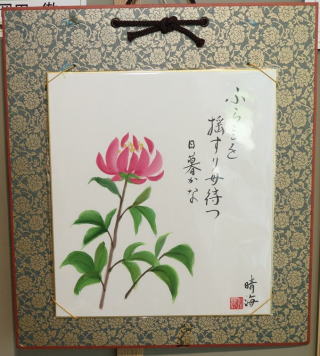 ふらここを
揺すり母待つ
日暮かな
晴海